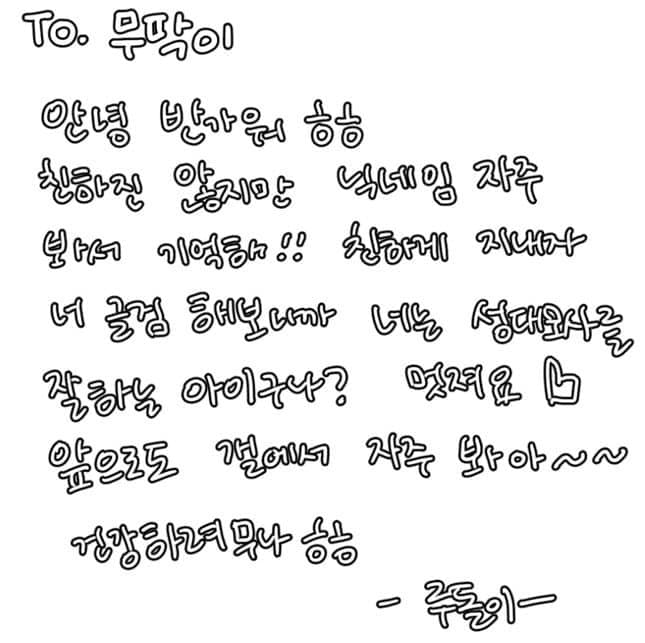 To. 무딱이
안녕 반가워 ㅎㅎ
친하진 않지만 닉네임 자주
봐서 기억해!! 친하게 지내자
너 글검 해보니까 너는 성대모사를
잘하는 아이구나? 멋져요
앞으로도 갤에서 자주 봐아~~
건강하려무나 ㅎㅎ
- 주돌이 -